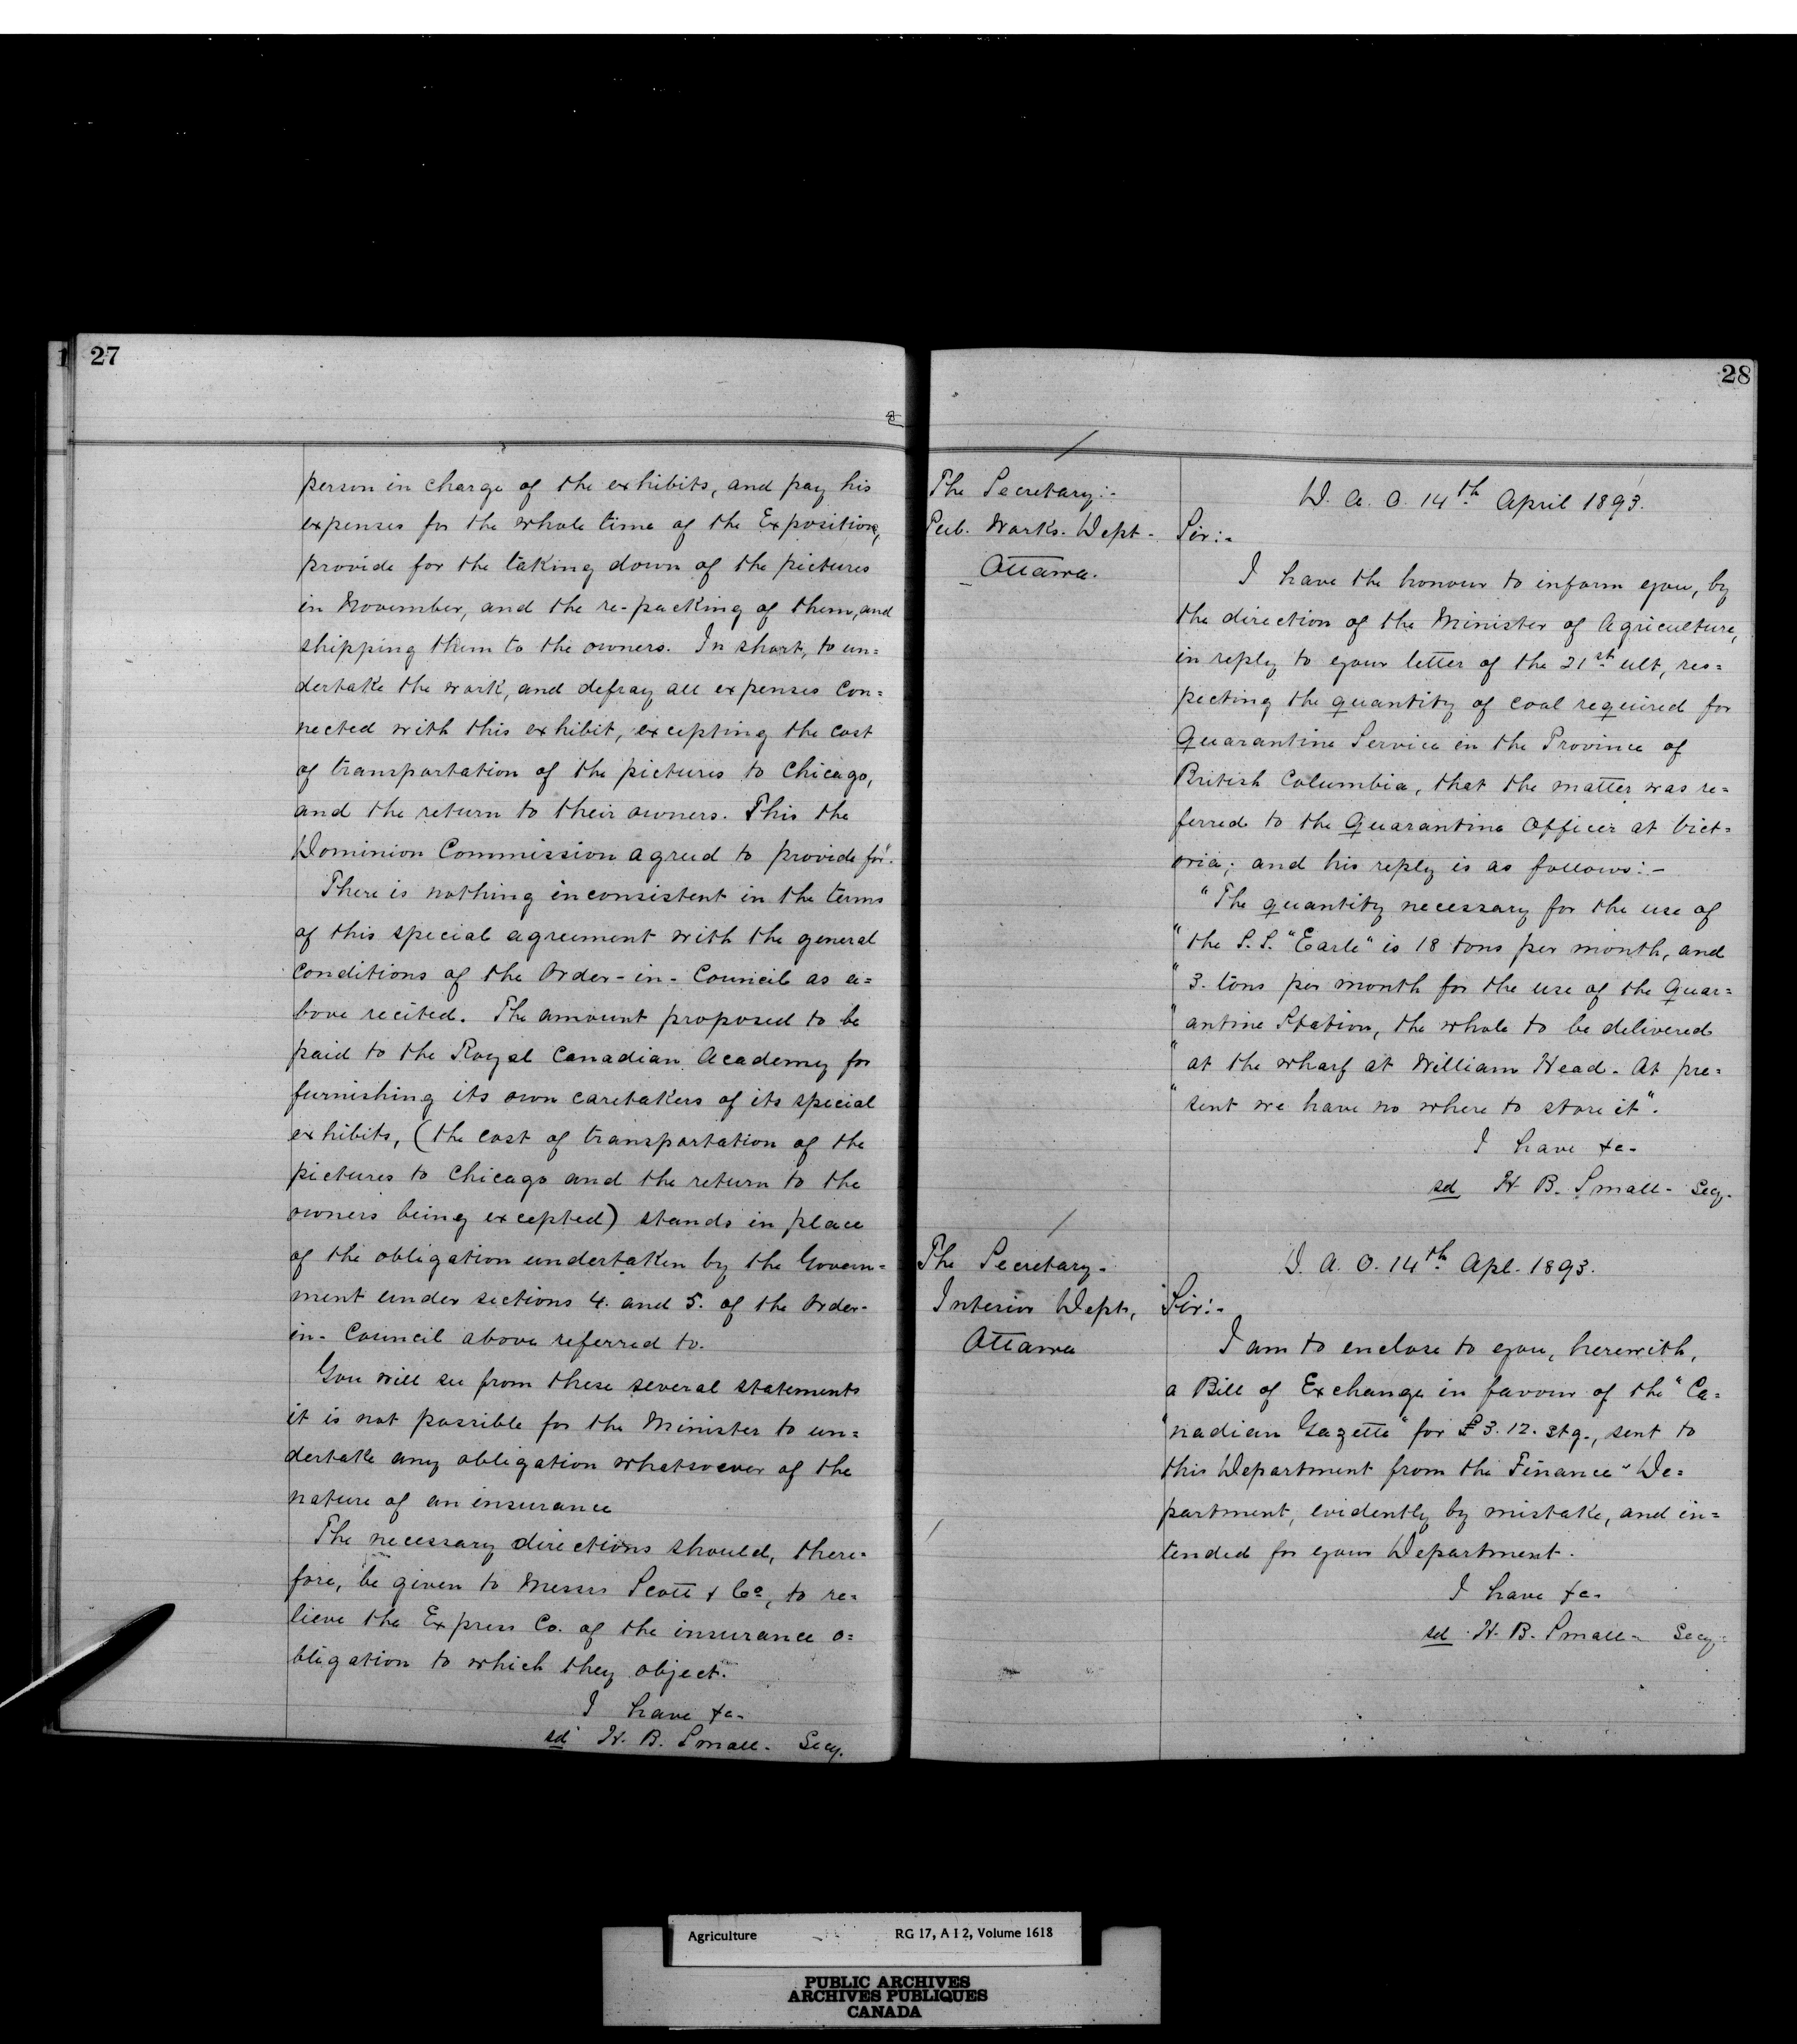 27
person in charge of the exhibits, and pay his
expenses for the whole time of the Exposition,
provide for the taking down of the pictures
in November, and the re-packing of them, and
shipping them to the owners. In short, to un=
dertake the work, and defray all expenses con=
nected with this exhibit, excepting the cost
of transportation of the pictures to Chicago,
and the return to their owners. This the
Dominion Commission agreed to provide for.
There is nothing inconsistent in the terms
of this special agreement with the general
conditions of the Order-in-Council as a=
bove recited. The amount proposed to be
paid to the Royal Canadian Academy for
furnishing its own caretakers of its special
exhibits, (the cost of transportation of the
pictures to Chicago and the return to the
owners being excepted) stands in place
of the obligation undertaken by the Govern=
ment under sections 4. and 5. of the Order-
in-Council above referred to.
You will see from these several statements
it is not possible for the Minister to un=
dertake any obligation whatsoever of the
nature of an insurance
The necessary directions should, there=
fore, be given to Messrs Scott & Co, to re=
lieve the Express Co. of the insurance o=
bligation to which they object.
I have &c-
sd H. B. Small- Secy.
28
The Secretary:-
Pub. Works. Dept-
Ottawa.
D. A. O. 14th April 1893.
Sir:-
I have the honour to inform you, by
the direction of the Minister of Agriculture,
in reply to your letter of the 21st ult, res=
pecting the quantity of coal required for
Quarantine Service in the Province of
British Columbia, that the matter was re=
ferred to the Quarantine Officer at Vict=
oria; and his reply is as follows:-
"The quantity necessary for the use of
"the S.S. "Earle" is 18 tons per month, and
"3. tons per month for the use of the Quar=
"antine Station, the whole to be delivered
"at the wharf at William Head. At pre=
"sent we have no where to store it".
I have &c-
sd H. B. Small- Secy.
The Secretary-
Interior Dept,
Ottawa
D. A. O. 14th Apl. 1893.
Sir:-
I am to enclose to you, herewith,
a Bill of Exchange in favour of the "Ca=
"nadian Gazette" for £3.12. stg., sent to
this Department from the Finance De=
partment, evidently by mistake, and in=
tended for your Department.
I have &c-
sd H. B. Small- Secy.
Agriculture RG 17, A I 2, Volume 1618
PUBLIC ARCHIVES
ARCHIVES PUBLIQUES
CANADA